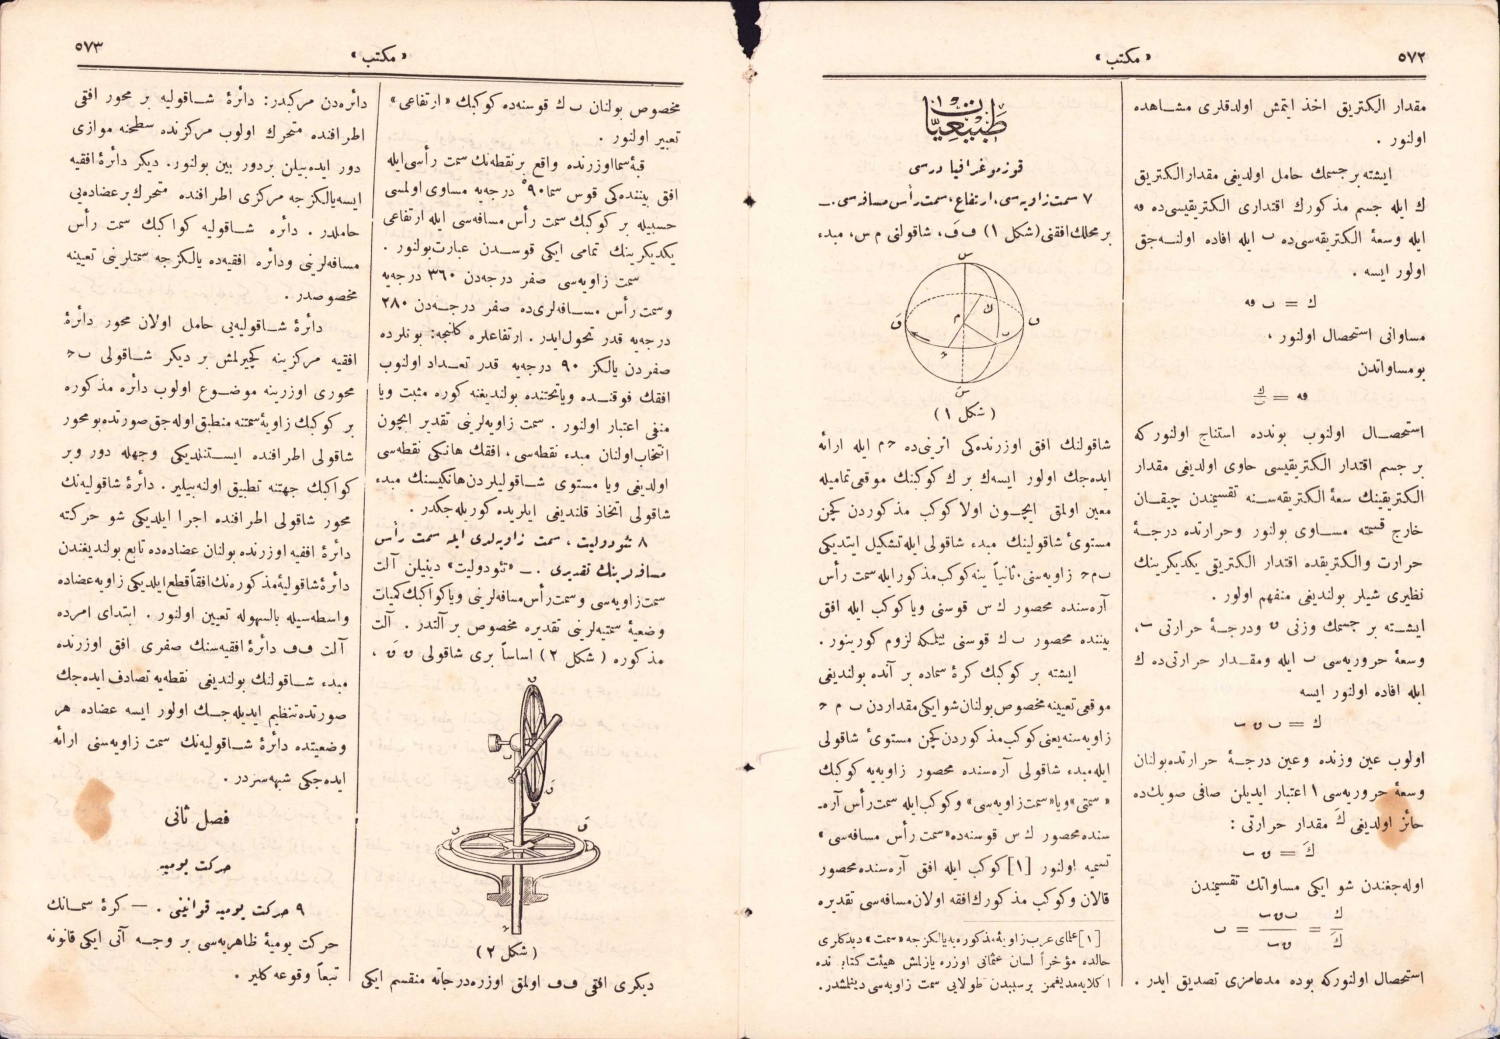 ٥٧٢
« مكتب »
مقدار الكتریق اخذ ایتمش اولدقلری مشاهده
اولنور .
ایشته بر جسمك حامل اولدیغی مقدار الكتریق
ك ایله جسم مذكورك اقتداری الكتریقیسی ده فه
ایله وسعهٔ الكتریقیه سی ده ب ایله افاده اولنه جق
اولور ایسه .
ك = ب فه
مساواتی استحصال اولنور .
بو مساواتدن
فه = ك / ب
استحصال اولنوب بوندده استنتاج اولنور كه
بر جسم اقتدار الكتریقیسی حاوی اولدیغی مقدار
الكتریقینك سعهٔ الكتریقیه سنه تقسیمندن چیقان
خارج قسمته مساوی بولنور وحرارتده درجهٔ
حرارت والكتریقده اقتدار الكتریقی یكدیگرینك
نظیری شیلر بولندیغی منفهم اولور .
ایشته بر جسمك وزنی ں ودرجهٔ حرارتی ت،
وسعهٔ حروریه سی ب ایله ومقدار حرارتی ده ك
ایله افاده اولنور ایسه
ك = ب ں ت
اولوب عین وزنده وعین درجهٔ حرارتده بولنان
وسعهٔ حروریه سی ١ اعتبار ایدیلن صافی صویك ده
حائز اولدیغی كَ مقدار حرارتی :
كَ = ں ت
اوله جغندن شو ایكی مساواتك تقسیمندن
ك / كَ = ب ں ت / ں ت = ب
استحصال اولنور كه بوده مدعامزی تصدیق ایدر .
طبیعیات
قوزموغرافیا درسی
٧ سمت زاویه سی، ارتفاع، سمت رأس مسافه سی . —
بر محلك افقنی (شكل ١) ف فَ، شاقولنی م س، مبدء
(شكل ١)
شاقولنك افق اوزرنده كی اثرینی ده ح م ایله ارائه
ایده جك اولور ایسه ك بر ك كوكبنك موقعی تمامیله
معین اولمق ایچون اولا كوكب مذكوردن كچن
مستوئ شاقولینك مبدء شاقولی ایله تشكیل ایتدیكی
ب م ح زاویه سنی . ثانیاً ینه كوكب مذكور ایله سمت رأس
آره سنده محصور ك س قوسنی ویا كوكب ایله افق
بیننده محصور ب ك قوسنی بیلمكه لزوم كورینور .
ایشته بر كوكبك كرهٔ سماده بر آنده بولندیغی
موقعی تعیینه مخصوص بولنان شو ایكی مقداردن ب م ح
زاویه سنه یعنی كوكب مذكوردن كچن مستوئ شاقولی
ایله مبدء شاقولی آره سنده محصور زاویه یه كوكبك
« سمتی » ویا « سمت زاویه سی » وكوكب ایله سمت رأس آره
سنده محصور ك س قوسنه ده « سمت رأس مسافه سی »
تسمیه اولنور [١] كوكب ایله افق آره سنده محصور
قالان وكوكب مذكورك افقه اولان مسافه سی تقدیره
[١] علمای عرب زاویهٔ مذكوره یه یالكز جه « سمت » دیدكلری
حالده مؤخراً لسان عثمانی اوزره یازلمش هیئت كتابنده
اكلایه مدیغمز بر سببدن طولایی سمت زاویه سی دینلمشدر .
٥٧٣
« مكتب »
مخصوص بولنان ب ك قوسنه ده كوكبك « ارتفاعی »
تعبیر اولنور .
قبهٔ سما اوزرنده واقع بر نقطه نك سمت رأسی ایله
افق بیننده كی قوس سما ٩٠° درجه یه مساوی اولمسی
حسبیله بر كوكبك سمت رأس مسافه سی ایله ارتفاعی
یكدیگرینك تمامی ایكی قوسدن عبارت بولنور .
سمت زاویه سی صفر درجه دن ٣٦٠ درجه یه
وسمت رأس مسافه لری ده صفر درجه دن ٢٨٠
درجه یه قدر تحول ایدر . ارتفاعلره كلنجه : بونلرده
صفردن یالكز ٩٠ درجه یه قدر تعداد اولنوب
افقك فوقنده ویا تحتنده بولندیغنه كوره مثبت ویا
منفی اعتبار اولنور . سمت زاویه لرینی تقدیر ایچون
انتخاب اولنان مبدء نقطه سی، افقك هانكی نقطه سی
اولدیغی ویا مستوی شاقولیلردن هانكیسنك مبدء
شاقولی اتخاذ قلندیغی ایلریده كوریله جكدر .
٨ تئودولیت ، سمت زاویه لری ایله سمت رأس
مسافه لرینك تقدیری . — « تئودولیت » دینیلن آلت
سمت زاویه سی وسمت رأس مسافه لرینی ویا كواكبك كمیات
وضعیهٔ سمتیه لرینی تقدیره مخصوص بر آلتدر . آلت
مذكوره (شكل ٢) اساساً بری شاقولی ں ںَ ،
(شكل ٢)
دیگری افقی ف ف اولمق اوزره درجاته منقسم ایكی
دائره دن مركبدر : دائرهٔ شاقولیه بر محور افقی
اطرافنده متحرك اولوب مركزنده سطحنه موازی
دور ایده بیلن بر دوربین بولنور . دیگر دائرهٔ افقیه
ایسه یالكز جه مركزی اطرافنده متحرك بر عضاده یی
حاملدر . دائره شاقولیه كواكبك سمت رأس
مسافه لرینی ودائره افقیه ده یالكز جه سمتلرینی تعیینه
مخصوصدر .
دائرهٔ شاقولیه یی حامل اولان محور دائرهٔ
افقیه مركزینه كچیرلمش بر دیگر شاقولی ب ح
محوری اوزرینه موضوع اولوب دائره مذكوره
بر كوكبك زاویهٔ سمتنه منطبق اوله جق صورتده بو محور
شاقولی اطرافنده ایستنلدیكی وجهله دور و بر
كواكبك جهتنه تطبیق اولنه بیلیر . دائرهٔ شاقولیه نك
محور شاقولی اطرافنده اجرا ایلدیكی شو حركته
دائرهٔ افقیه اوزرنده بولنان عضاده ده تابع بولندیغندن
دائرهٔ شاقولیهٔ مذكوره نك افقاً قطع ایلدیكی زاویه عضاده
واسطه سیله بالسهوله تعیین اولنور . ابتدای امرده
آلت ف ف دائرهٔ افقیه سنك صفری افق اوزرنده
مبدء شاقولنك بولندیغی نقطه یه تصادف ایده جك
صورتده تنظیم ایدیله جك اولور ایسه عضاده هر
وضعیتده دائرهٔ شاقولیه نك سمت زاویه سنی ارائه
ایده جكی شبهه سزدر .
فصل ثانی
حركت یومیه
٩ حركت یومیه قوانینی . — كرهٔ سمانك
حركت یومیهٔ ظاهریه سی بر وجه آتی ایكی قانونه
تبعاً وقوعه كلیر .